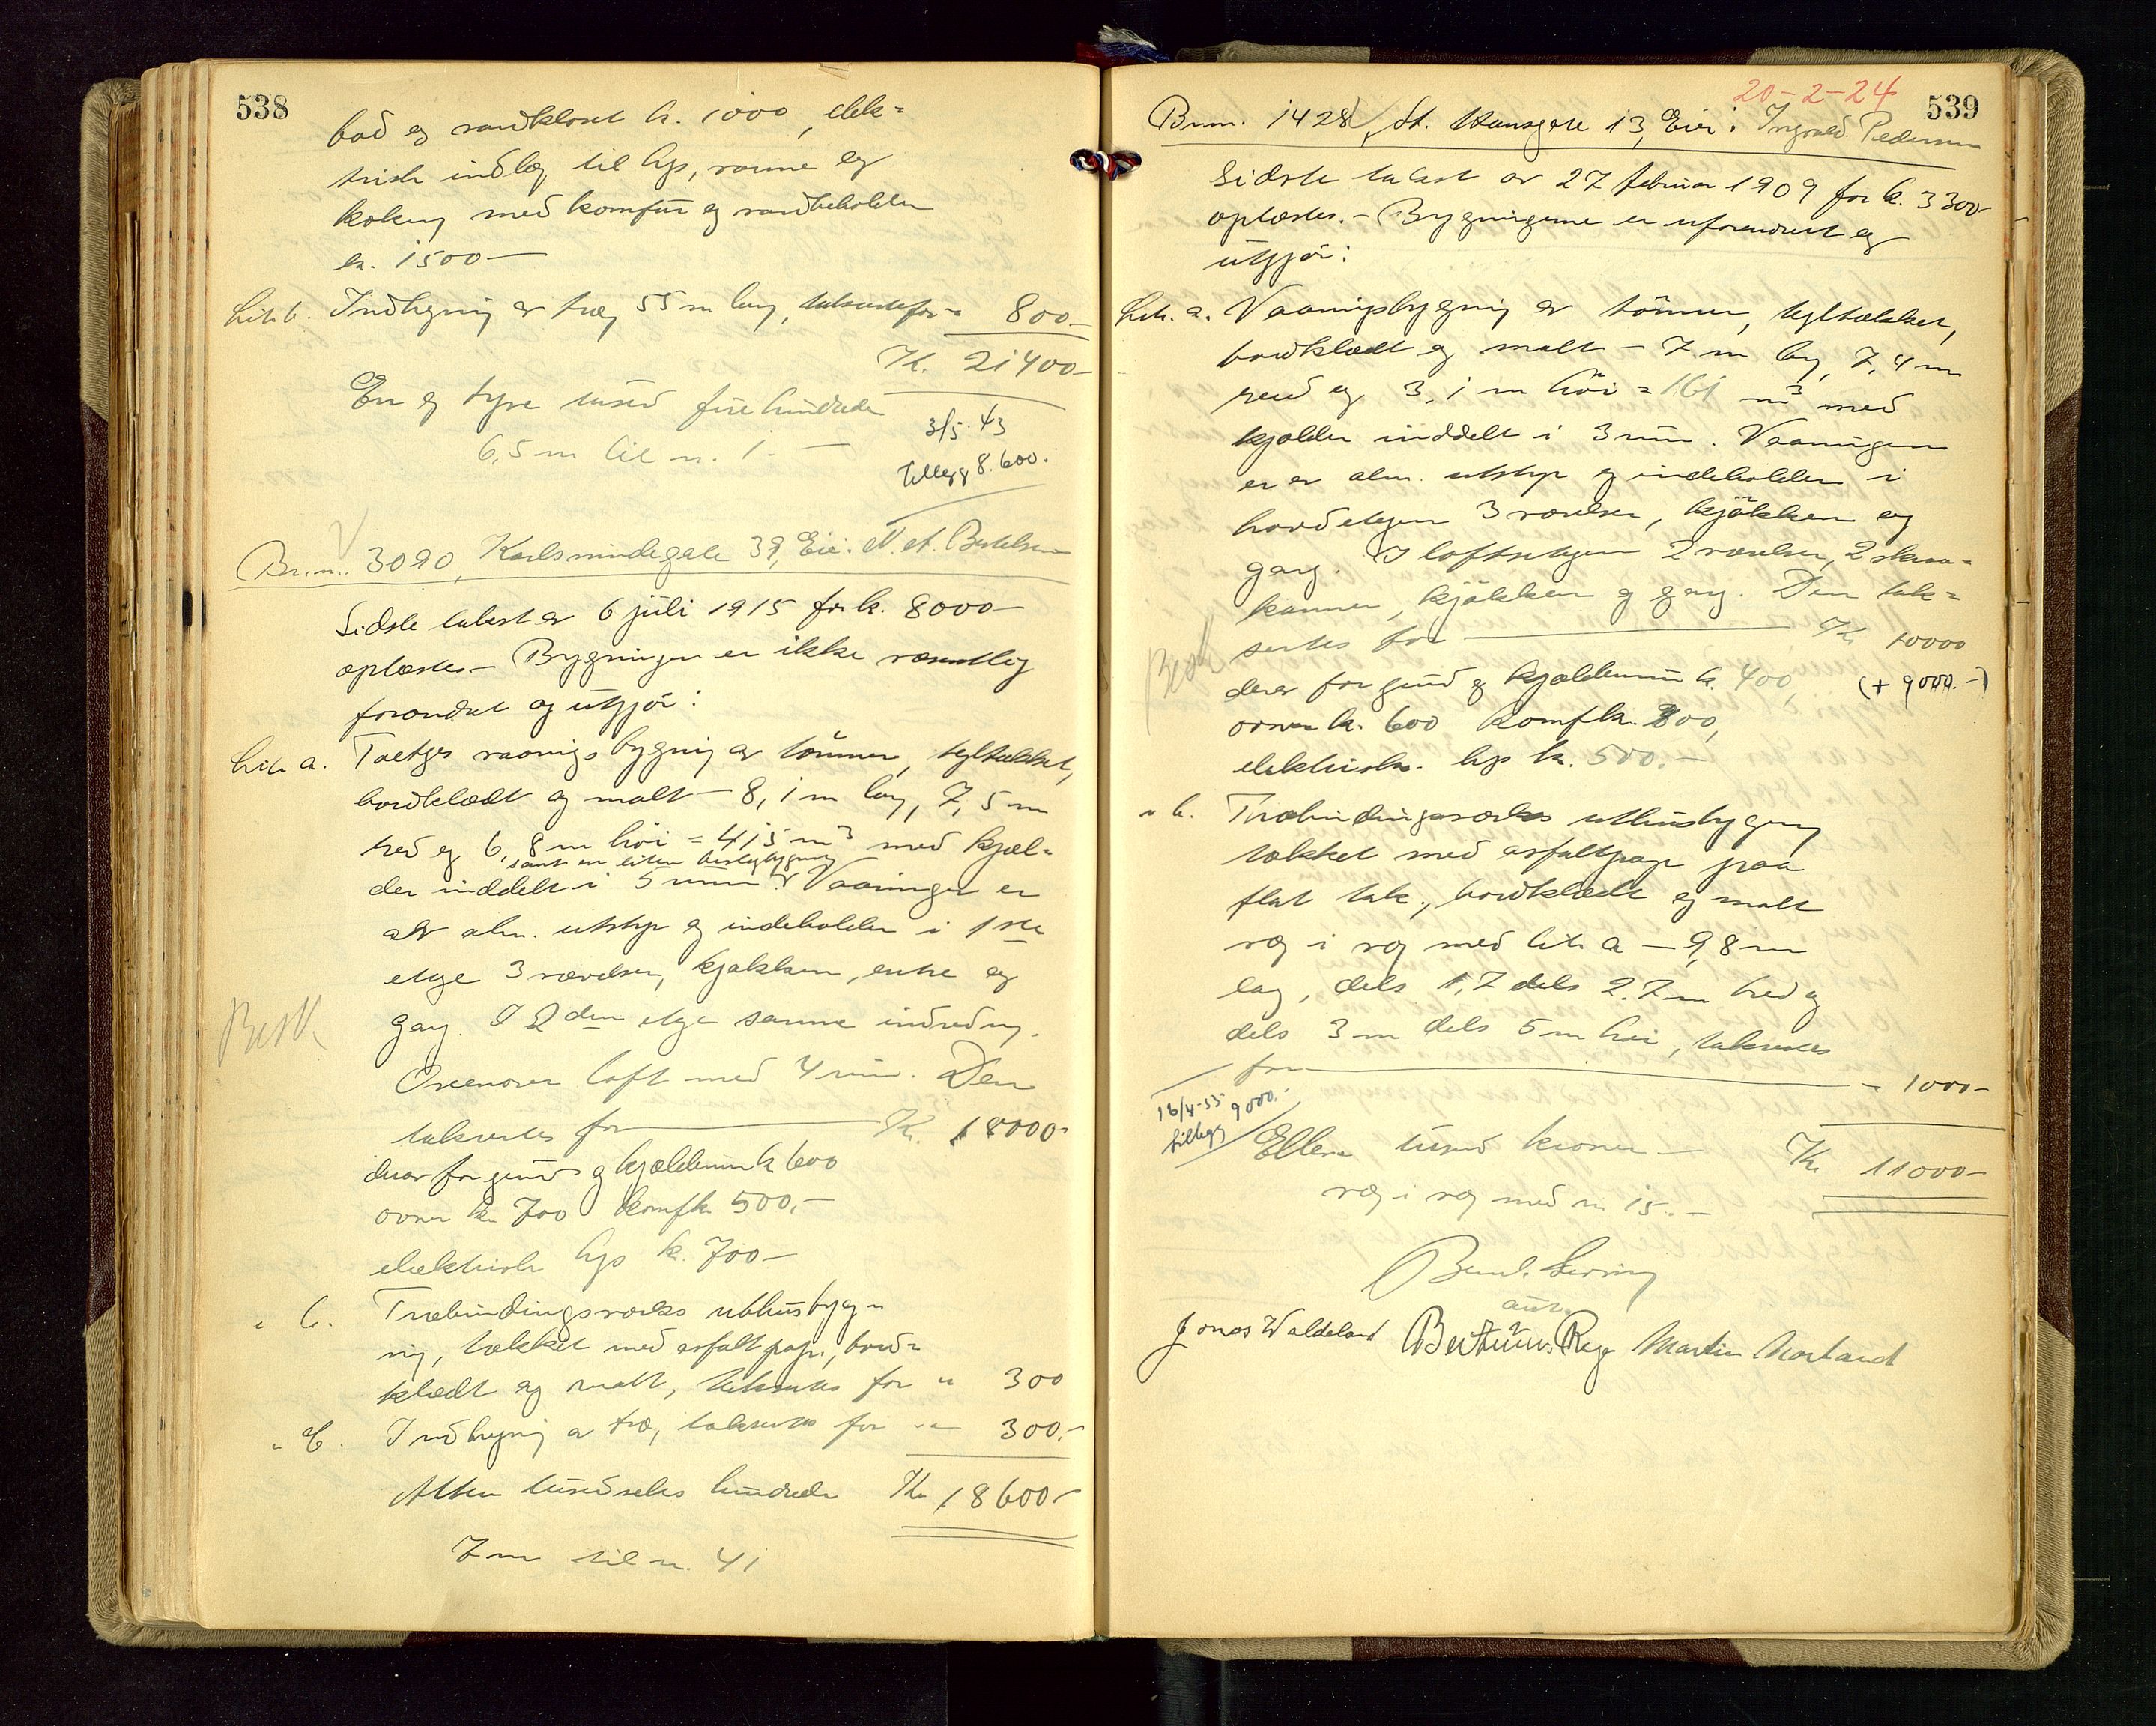 538
bad og vandkloset kr. 1000, elek=
trisk indlæg til lys, varme og
koking med komfur og vandbeholder
kr. 1500—
Lit. b. Indhegning av træ, 55 m lang, takseres for " 800.—
Kr. 21400.—
En og tyve tusind fire hundrede
6,5 m til nr. 1. —
3/5. 43
tillegg 8.600.
Br.nr. 3090, Karlsmindegate 39, Eier: N. A. Bertelsen
Sidste takst av 6 juli 1915 for kr. 8000—
oplæstes. — Bygningen er ikke væsentlig
forandret og utgjør:
Lit. a. Toetges vaaningsbygning av tømmer, tegltækket,
bordklædt og malt — 8,1 m lang, 7,5 m
bred og 6,8 m høi = 415 m3 med kjæl=
samt en liten bislagbygning
der inddelt i 5 rum. Vaaningen er
av alm. utstyr og indeholder i 1ste
etage 3 værelser, kjøkken, entre og
gang. I 2den etage samme indredning.
Ovenover loft med 4 rum. Den
Besk
takseres for — Kr. 18000.—
derav for grund og kjælderrum kr. 600
ovner kr. 700 komf. kr. 500,—
elektrisk lys kr. 700—
" b. Træbindingsværks uthusbyg=
ning, tækket med asfaltpap, bord=
klædt og malt, takseres for " 300
" c. Indhegning av træ, takseres for " 300.—
Atten tusind seks hundrede Kr. 18600.—
7 m til nr. 41
20-2-24
539
Br.nr. 1428, St. Hansgate 13, Eier: Ingvald Pedersen
Sidste takst av 27 februar 1909 for kr. 3300.—
oplæstes. — Bygningerne er uforandret og
utgjør:
Lit. a. Vaaningsbygning av tømmer, tegltækket,
bordklædt og malt — 7 m lang, 7,4 m
bred og 3,1 m høi = 161 m3 med
kjælder inddelt i 3 rum. Vaaningen
er av alm. utstyr og indeholder i
hovedetagen 3 værelser, kjøkken og
gang. I loftsetagen 2 værelser, 2 skraa=
kammer, kjøkken og gang. Den tak=
seres for — Kr. 10000
Besk
derav for grund og kjælderrum kr. 400, (+ 9000.—)
ovner kr. 600 komf. kr. 800,
elektrisk lys kr. 500.—
" b. Træbindingsværks uthusbygning
tækket med asfaltpap paa
flat tak, bordklædt og malt
væg i væg med lit. a — 9,8 m
lang, dels 1,7 dels 2,7 m bred og
dels 3 m dels 5 m høi, takseres
for — " 1000.—
16/4-55 9000.—
tillegg
Elleve tusind kroner — Kr. 11000.—
væg i væg med nr. 15. —
aut.
Jonas Waldeland Bertinius Rege Martin Norland